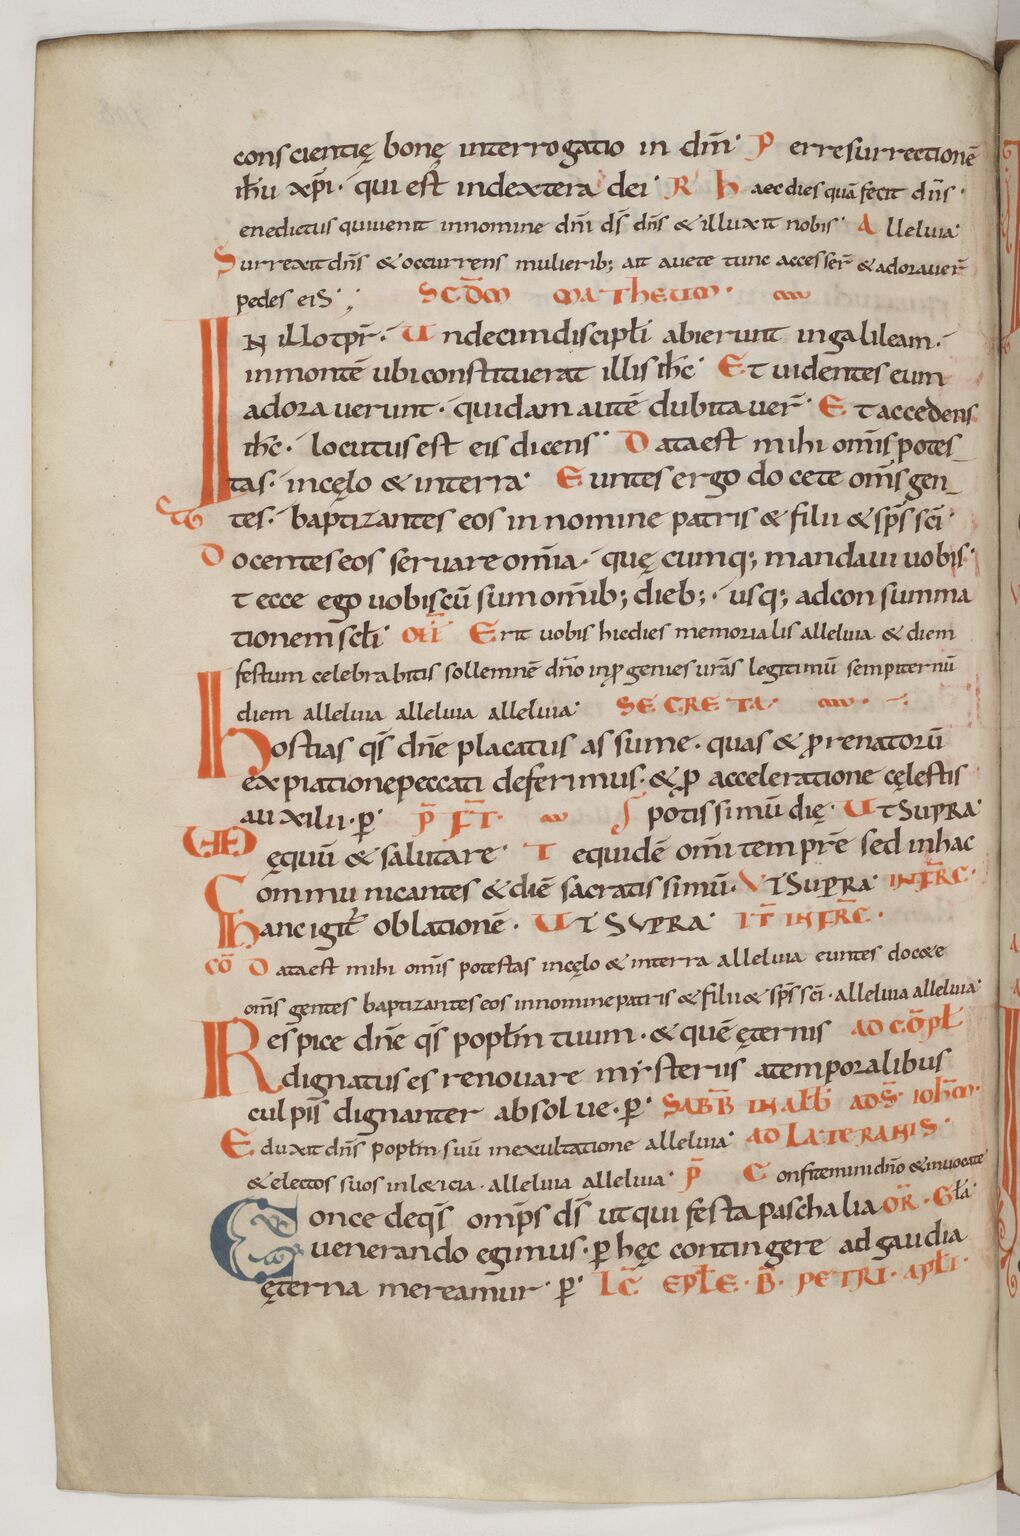 conscientię bonę interrogatio in dm̄· P erresurrectionē
ih̄u xp̄i· qui est indextera dei· R̄ h aecdies quā fecit dn̄s·
enedictus quiuenit innomine dn̄i ds̄ dn̄s & illuxit nobis· A lleluia·
Surrexit dn̄s & occurrens mulierib; ait auete tunc accesser̄ & adorauer̄
pedes eiS·; SCD̄M MATHEUM·
IN illo tp̄r· Undecim discipłi abierunt ingalileam·
inmontē ubi constituerat illis ih̄c· Et uidentes eum
adorauerunt· quidam autē dubitauer̄· Et accedens
ih̄c· locutus est eis dicens· Data est mihi om̄is potes_
tas· incęlo & interra· Euntes ergo docete om̄s gen_
tes· baptizantes eos in nomine patris & filii & sp̄s sc̄i·
Docentes eos seruare om̄ia· quę cumq; mandaui uobis·
t ecce ego uobiscū sum om̄ib; dieb;· usq; adconsumma
tionem scłi· OFF̄ Erit uobis hicdies memorialis alleluia & diem
festum celebrabitis sollemnē dn̄o inprogenies urās legitimū sempiternū
diem alleluia alleluia alleluia· SECRETA·
Hostias qs̄ dn̄e placatus assume· quas & ꝓrenatorū
expiatione peccati deferimus· & ꝓ acceleratione cęlestis
auxilii· ꝑ· P̄ F̄T· S potissimū die· UT SUPRA·
ęquū & salutare· T equidē om̄i tempr̄e sed inhac
Communicantes & diē sacratissimū· UT SUPRA· INFR̄C·
Hanc igit̄ oblationē· UT SUPRA· IT̄ INFR̄C·
CŌ Data est mihi om̄is potestas incęlo & interra alleluia euntes doc&e
om̄s gentes baptizantes eos innomine patris & filii & sp̄s sc̄i· alleluia alleluia·
Respice dn̄e qs̄ popłm tuum· & quē ęternis AD CŌPŁ
dignatus es renouare mysteriis atemporalibus
culpis dignanter absolue· ꝑ· SABB̄ IN ALB̄ AD S̄· IOH̄M·
Eduxit dn̄s popłm suū inexultatione alleluia· AD LATERANIS·
& electos suos inl&icia· alleluia alleluia· P̄ Confitemini dn̄o & inuocate
Conce deqs̄ omp̄s ds̄ ut qui festa paschalia OR̄· GŁA·
uenerando egimus· ꝑ hęc contingere ad gaudia
ęterna mereamur· ꝑ· LC̄ EPŁE· B̄· PETRI· APŁI·